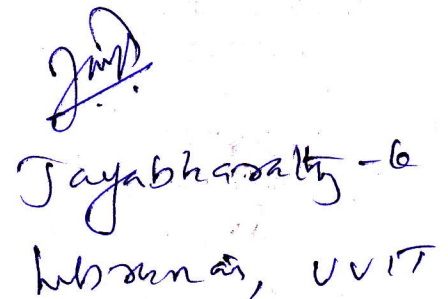 Jayabharathy - G
Librarian, VVIT